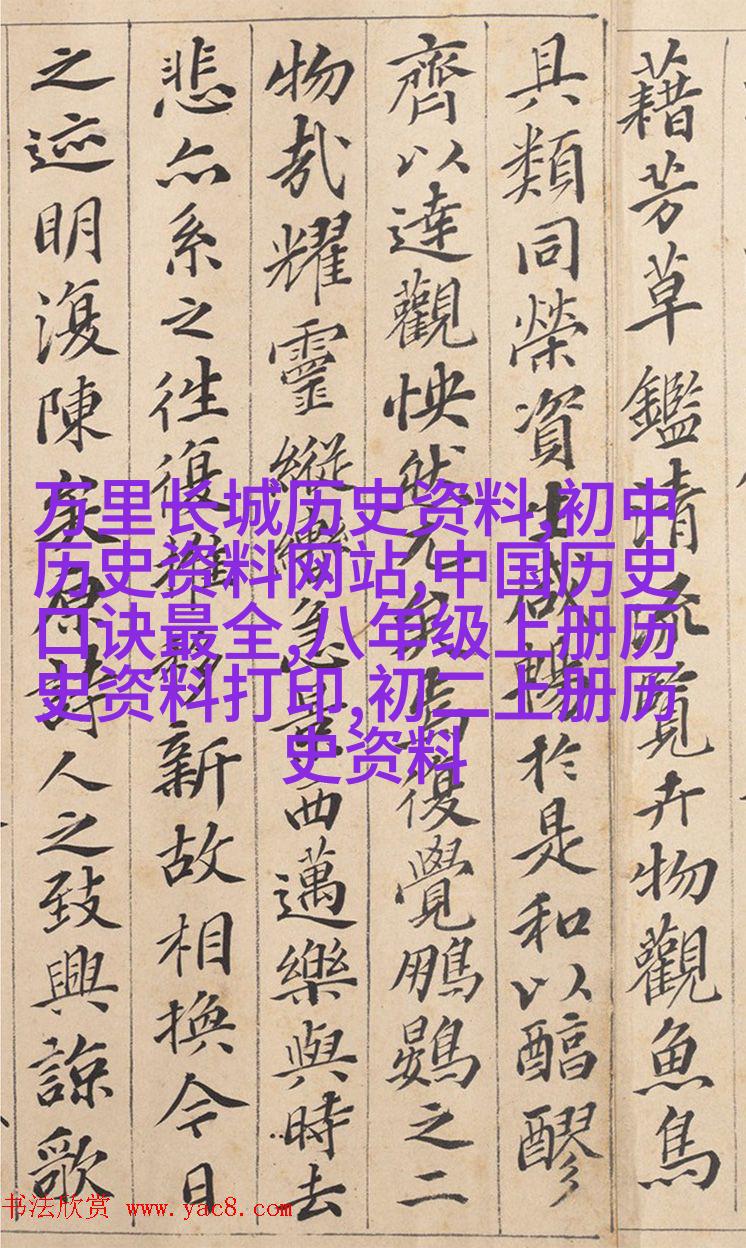 藉芳草鑑清流覽卉物觀魚鳥
具類同榮資生咸暢於是和以醕醪
齊以達觀怏然兀矣焉復覺鵬鷃之二
物哉耀靈縱轡急景西邁樂與時去
悲亦系之往復推移新故相換今日
之迹明復陳矣原詩人之致興諒歌
万里长城历史资料,初中
历史资料网站,中国历史
口诀最全,八年级上册历
史资料打印,初二上册历
史资料
书法欣赏 www.yac8.com